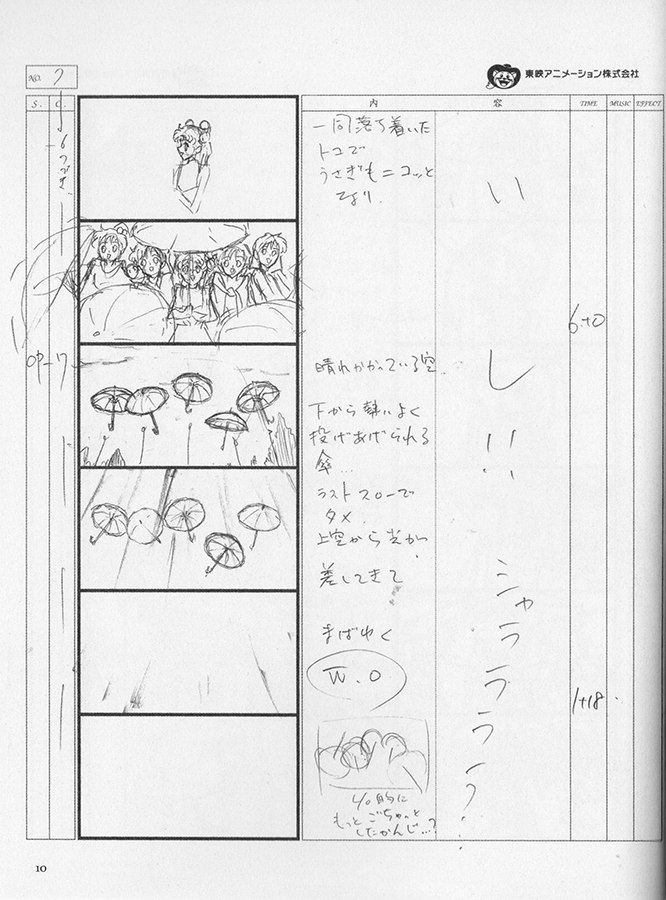 NO. 7
東映アニメーション株式会社
S. C. 内 容 TIME MUSIC EFFECT
6つづき
一同落ち着いた
トコで
うさぎもニコッと
なり.
い
6+0
OP-7
晴れかかっている空
し
下から勢いよく
投げあげられる
傘...
ラストスローで
タメ
上空から光が
差してきて
シャララララ
まばゆく
W.O
1+18
もっとごちゃっと
したかんじ...?
10